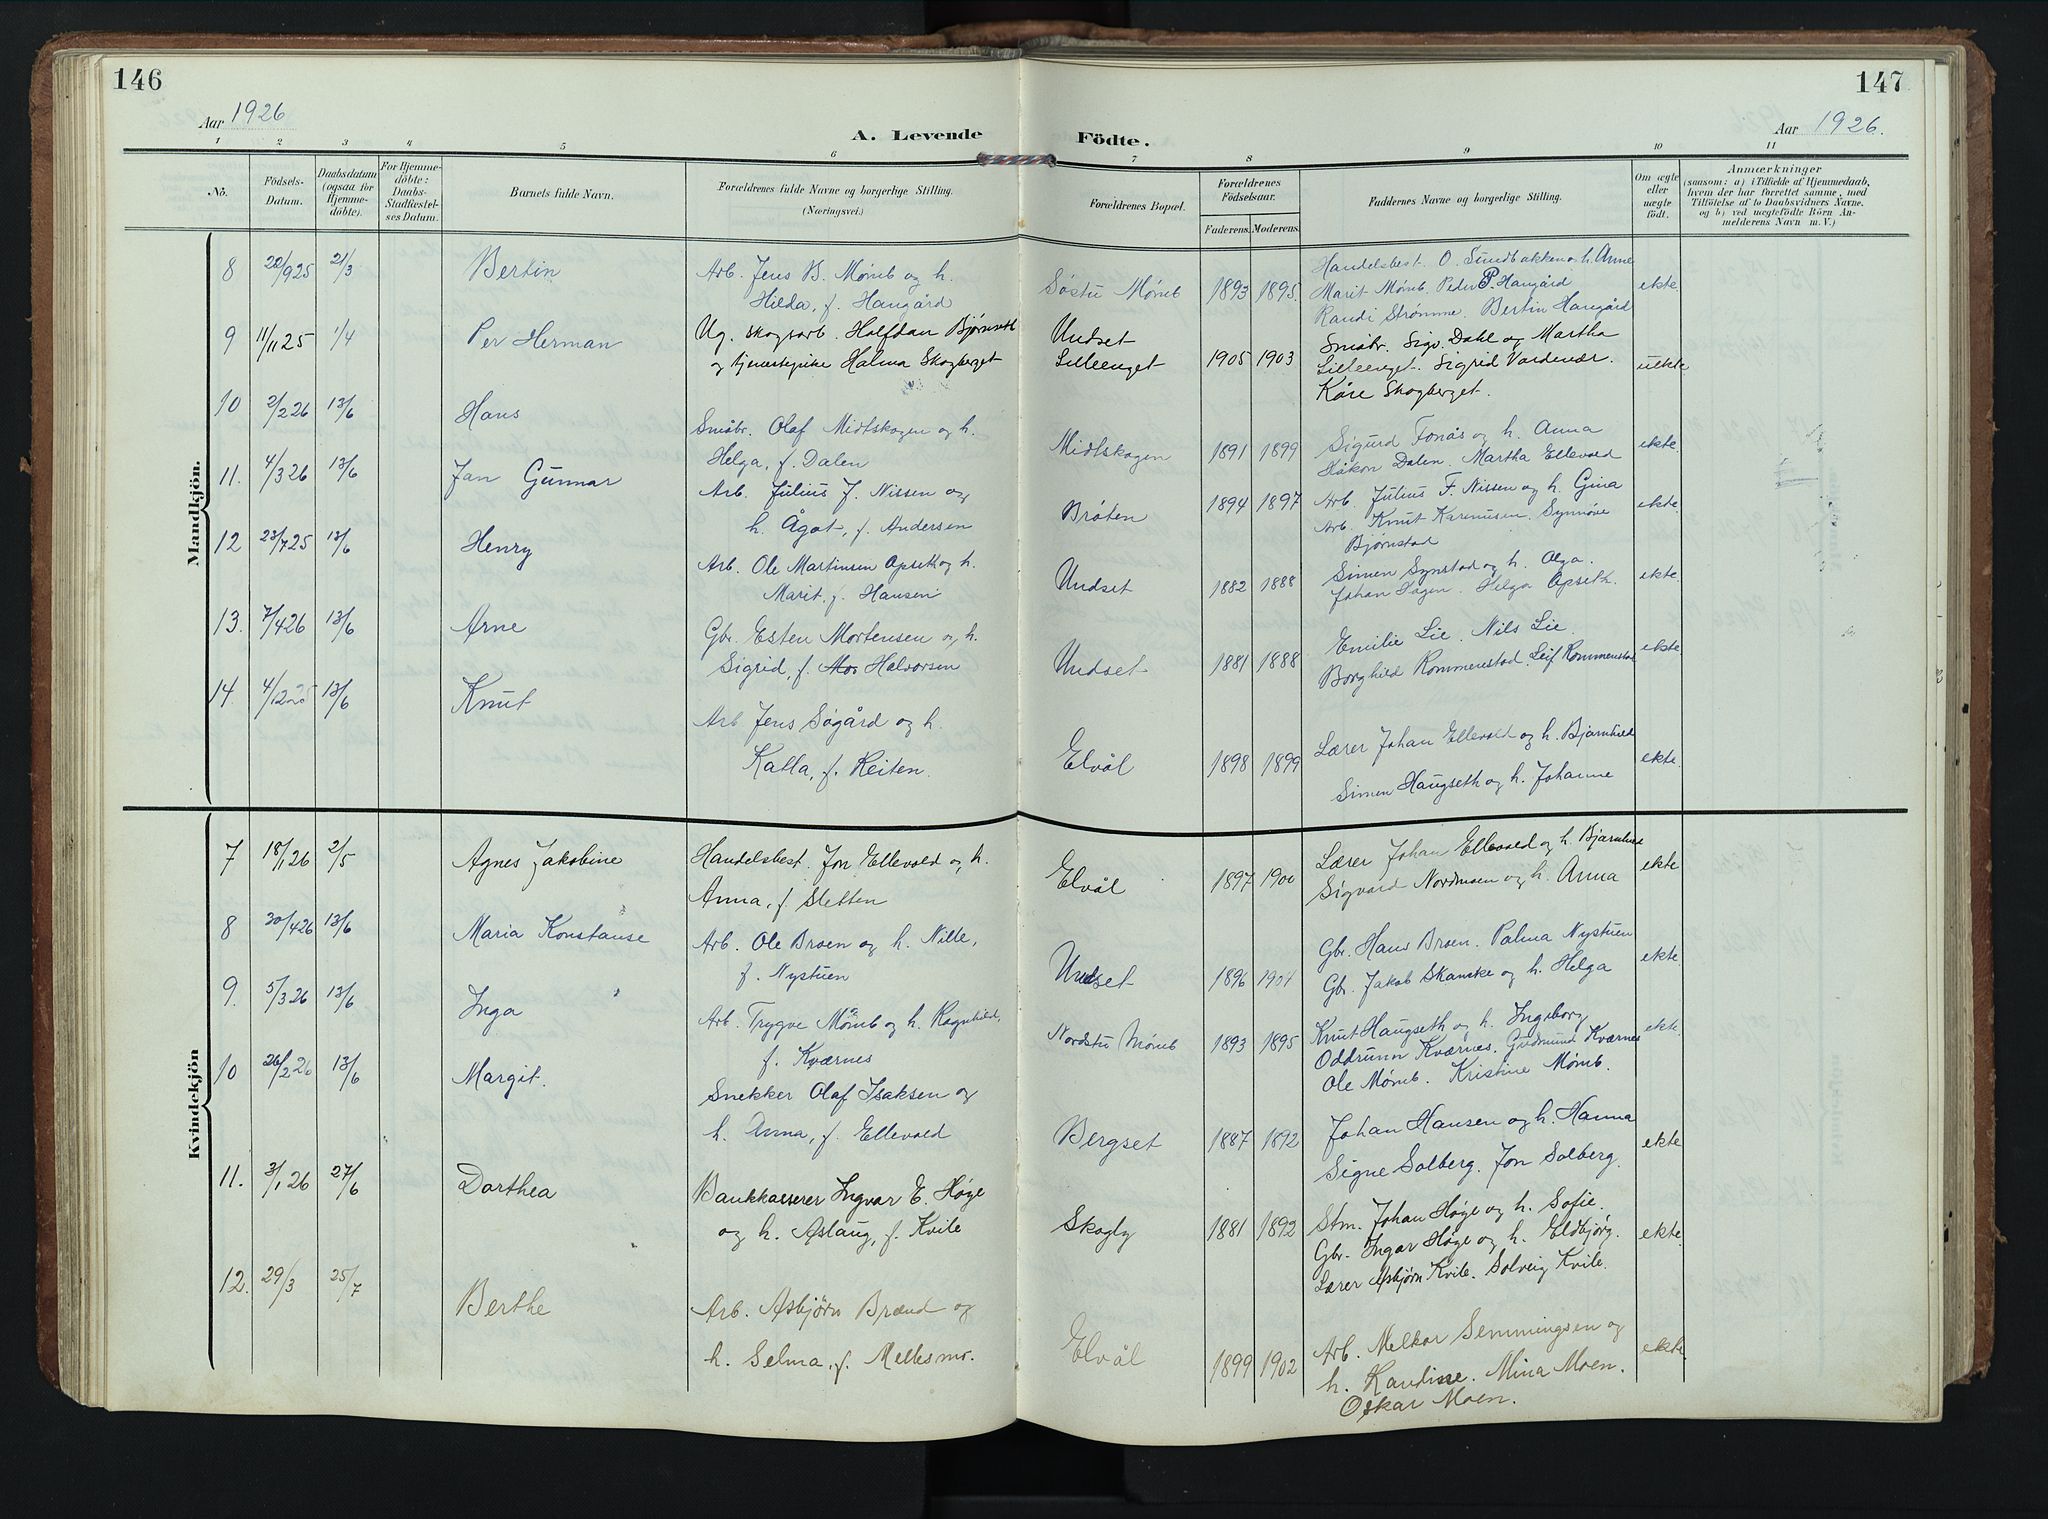 146
147
Aar 1926
A. Levende Födte.
Aar 1926.
1 2 3 4 5 6 7 8 9 10 11
No.
Födsels-Datum.
Daabsdatum (ogsaa for Hjemmedöbte).
For Hjemmedöbte: Daabs-Stadfæstelses Datum.
Barnets fulde Navn.
Forældrenes fulde Navne og borgerlige Stilling.
(Næringsvei.)
Forældrenes Bopæl.
Forældrenes Födselsaar.
Faderens. Moderens.
Faddernes Navne og borgerlige Stilling.
Om ægte eller uægte födt.
Anmærkninger
(saasom: a) i Tilfælde af Hjemmedaab, hvem der har forrettet samme, med Tilföielse af to Daabsvidners Navne, og b) ved uægtefödte Börn Anmelderens Navn m. V.)
Mandkjön.
8 20/9 25 21/3 Bertin
Arb. Jens B. Mømb og h.
Hilda, f. Haugård
Søstu Mømb 1893 1895
Handelsbest. O. Sundbakken og h. Anne
Marit Mømb. Peder P. Haugård
Randi Strømme. Bertin Haugård
ekte
9 11/11 25 1/4 Per Herman
Ug. skogsarb. Halfdan Bjørnseth
og tjenestepike Halma Skogberget
Undset
Lilleenget 1905 1903
Småbr. Sigv. Dahl og Martha
Lilleenget. Sigrid Vardenær.
Kåre Skogberget.
uekte
10 2/2 26 13/6 Hans
Småbr. Olaf Midtskogen og h.
Helga, f. Dalen
Midtskogen 1891 1899
Sigurd Fonås og h. Anna
Håkon Dalen. Martha Ellevold
ekte
11. 4/3 26 13/6 Jan Gunnar
Arb. Julius J. Nissen og
h. Ågot, f. Andersen
Bråten 1894 1897
Arb. Julius F. Nissen og h. Gina
Arb. Knut Karenusen. Synnøve
Bjørnstad
ekte
12 23/7 25 13/6 Henry
Arb. Ole Martinsen Opseth og h.
Marit, f. Hansen
Undset 1882 1888
Simen Synstad og h. Olga.
Johan Hagen. Helga Opseth.
ekte
13. 7/4 26 13/6 Arne
Gbr. Esten Mortensen og h.
Sigrid, f. Mor Halvorsen
Undset 1881 1888
Emilie Lie. Nils Lie.
Borghild Rommenstad. Leif Rommenstad
ekte
14. 4/12 25 13/6 Knut
Arb. Jens Søgård og h.
Kalla, f. Reiten.
Elvål 1898 1899
Lærer Johan Ellevold og h. Bjarnhild
Simen Haugseth og h. Johanne
ekte
Kvindekjön
7 18/1 26 2/5 Agnes Jakobine
Handelsbest. Jon Ellevold og h.
Anna, f. Sletten
Elvål 1897 1900
Lærer Johan Ellevold og h. Bjarnhild
Sigvard Nordmoen og h. Anna
ekte
8 30/4 26 13/6 Maria Konstanse
Arb. Ole Broen og h. Nille,
f. Nystuen
Undset 1896 1904
Gbr. Hans Broen. Palma Nystuen
Gbr. Jakob Skanske og h. Helga
ekte
9. 5/3 26 13/6 Inga
Arb. Trygve Mømb og h. Ragnhild,
f. Kværnes
Nordstu Mømb 1893 1895
Knut Haugseth og h. Ingeborg
Oddrunn Kværnes. Gudmund Kværnes
Ole Mømb. Kristine Mømb.
ekte
10 26/2 26 13/6 Margit.
Snekker Olaf Isaksen og
h. Anna, f. Ellevold
Bergset 1887 1892
Johan Hansen og h. Hanna
Signe Solberg. Jon Solberg.
ekte
11. 3/1 26 27/6 Dorthea
Bankkasserer Ingvar E. Høye
og h. Aslaug, f. Kvile
Skogly 1881 1892
Stm. Johan Høye og h. Sofie.
Gbr. Ingar Høye og h. Eldbjørg.
Lærer Asbjørn Kvile. Solveig Kvile.
ekte
12. 29/3 25/7 Berthe
Arb. Asbjørn Brænd og
h. Selma, f. Mellesmo.
Elvål 1899 1902
Arb. Melkor Semmingsen og
h. Kandine. Mina Moen.
Oskar Moen.
ekte